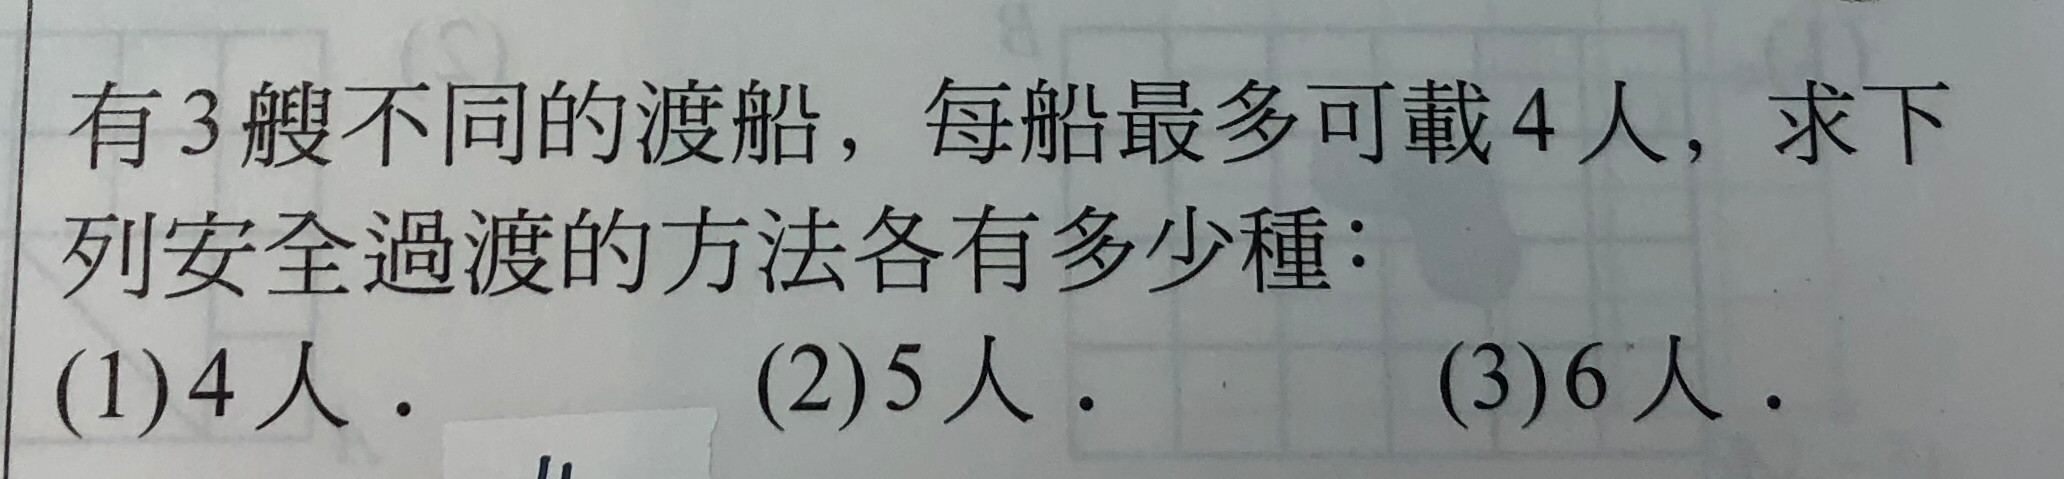 有3艘不同的渡船，每船最多可載4人，求下
列安全過渡的方法各有多少種：
(1)4人． (2)5人． (3)6人．